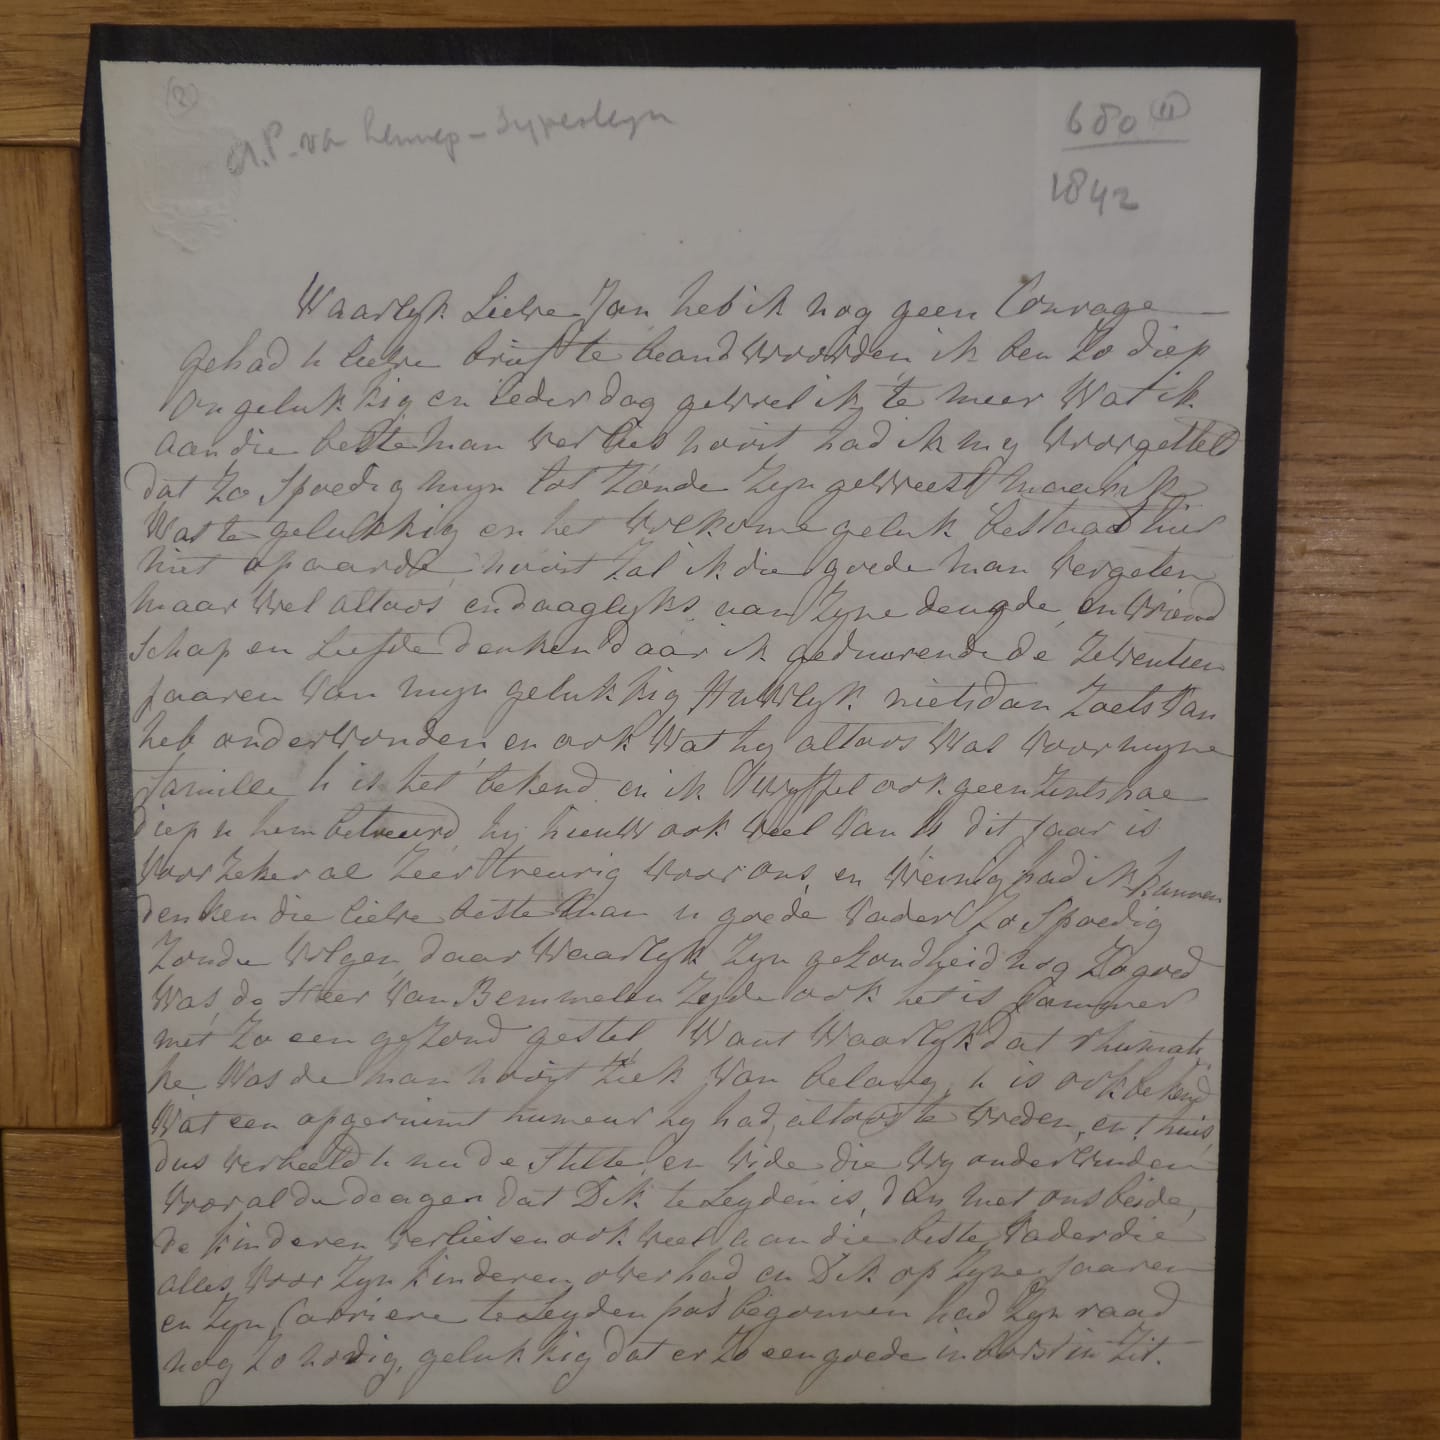 (2)
A.P. van Lennep - Sypesteyn
680 (11)
1842
Waarlyk Lieve Jan heb ik nog geen Courage
gehad u lieve brief te beandwoorden, ik ben zo diep
ongelukkig en ieder dag gevoel ik te meer wat ik
aan die beste man verlies nooit had ik my voorgesteld
dat zo spoedig myn lot zoude zyn geweest maar ik
was te gelukkig en het volkome geluk bestaad hier
niet op aarde, nooit zal ik die goede man vergeten
maar wel altoos en daaglyks aan zyne deugde en vriend
schap en Liefde denken daar ik geduurende de zeventien
jaaren van myn gelukkig Huwlyk niets dan zoets van
heb ondervonden, en ook wat hy altoos was voor myne
familie u is het bekend en ik twyffel ook geenzints hoe
diep u hem betreurd, hy hieuw ook veel van u, dit jaar is
voorzeker al zeer treurig voor ons, en weinig had ik kunnen
denken die lieve beste man u goede Vader zo spoedig
zoude volgen, daar waarlyk zyn gezondheid nog zo goed
was, de Heer van Bemmelen zeyde ook het is jammer
met zo een gezond gestel want waarlyk dat rhumatik
ke was de man nooit ziek van belang, u is ook bekend
wat een opgeruimt humeur hy had, altoos te vreden, en thuis,
dus verbeeld u nu de stilte, en vide die wy ondervinden
vooral de daagen dat Dik te Leyden is, dan met ons beide,
de kinderen verliesen ook veel aan die beste Vader die
alles voor zyn kinderen over had, en Dik op zyne jaaren
en zyn Carriere te Leyden pas begonnen had zyn raad
nog zo nodig, gelukkig dat er zo een goede inborst in zit.